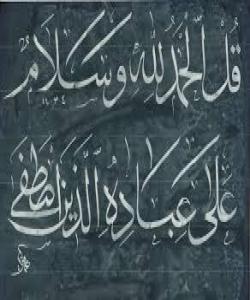 قُلِ الْحَمْدُ لِلَّهِ وَسَلَامٌ
عَلَىٰ عِبَادِهِ الَّذِينَ اصْطَفَىٰ